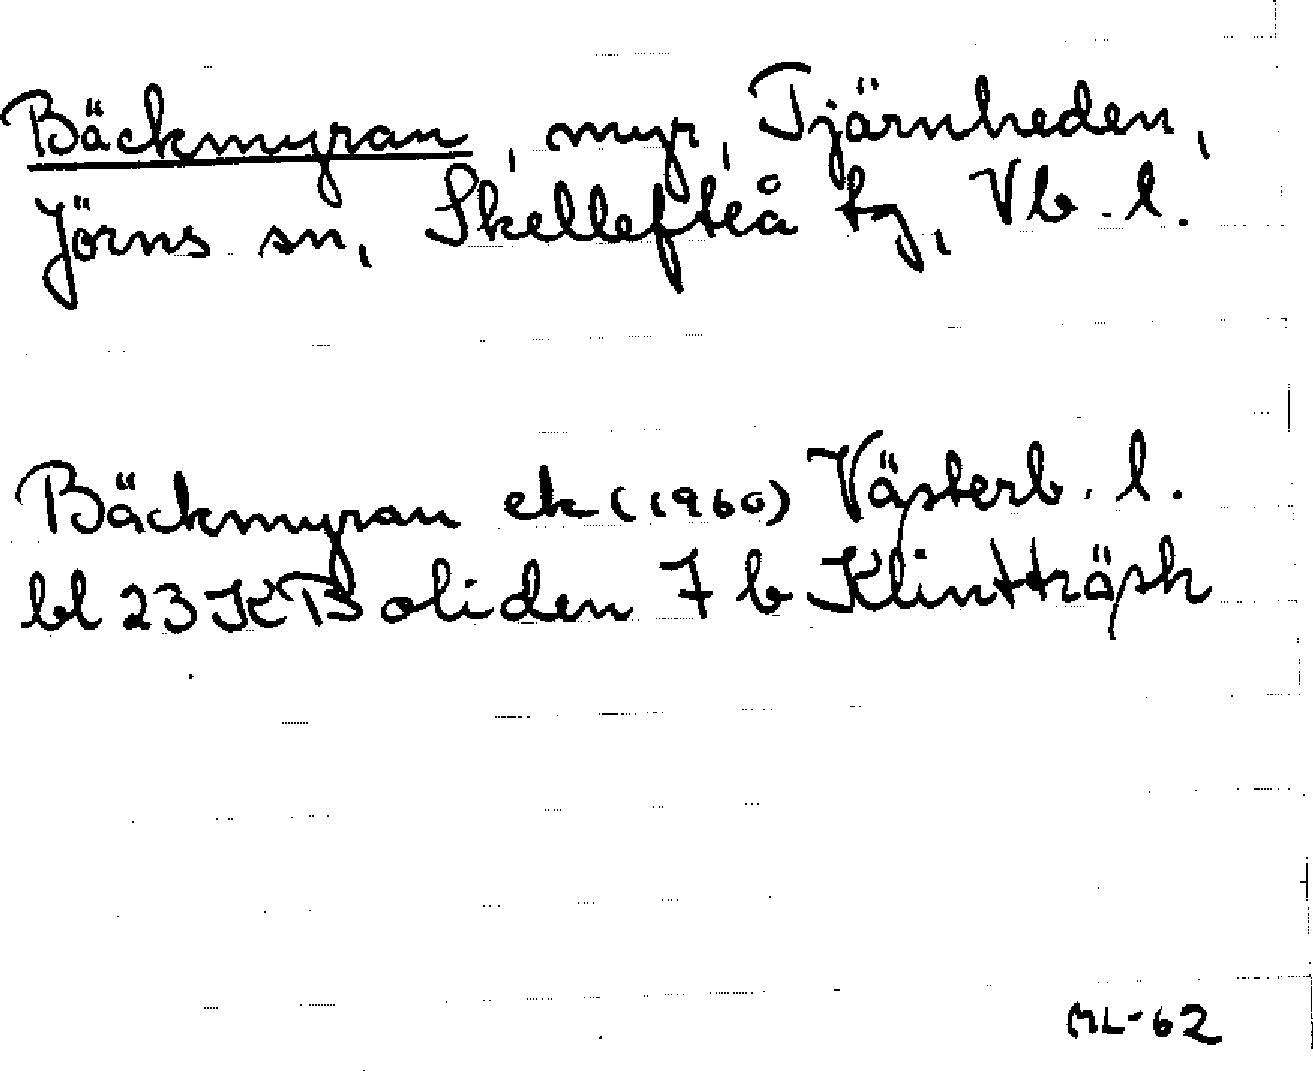 Bäckmyran, myr, Tjärnheden,
Jörns sn, Skellefteå tg, Vb. l.
Bäckmyran ek (1960) Västerb. l.
bl 23 K Boliden 7 b Klintträsk
ML-62